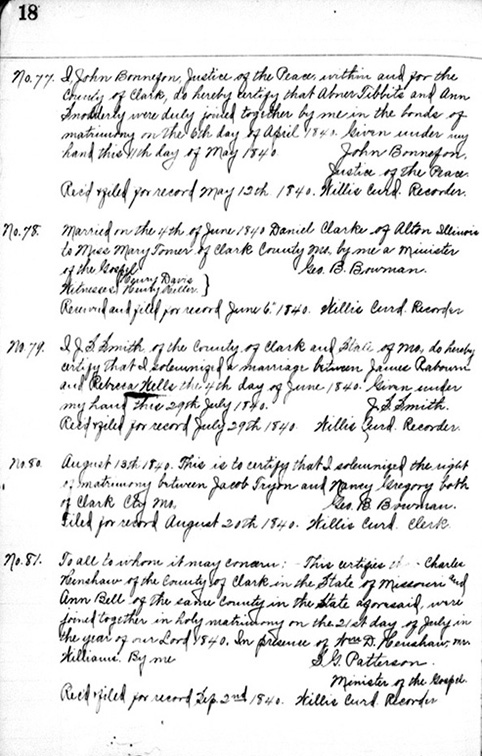 18
No. 77. I, John Bonnefon, Justice of the Peace, within and for the
County of Clark, do hereby certify that Abner Tibbits and Ann
Snodderly were duly joined together by me in the bonds of
matrimony on the 6th day of April 1840. Given under my
hand this 4th day of May 1840. John Bonnefon,
Justice of the Peace.
Rec'd & filed for record May 12th 1840. Willis Curd. Recorder.
No. 78. Married on the 4th of June 1840 Daniel Clarke of Alton Illinois
to Miss Mary Tomer of Clark County Mo. by me a Minister
of the Gospel. Geo. B. Bowman.
Witnesses Henry Davis
Received and filed for record June 6" 1840. Willis Curd. Recorder
No. 79. I J. S. Smith of the County of Clark and State of Mo, do hereby
certify that I solemnized a marriage between James Rabourn
and Rebecca Wells the 4th day of June 1840. Given under
my hand this 29th July 1840. J. S. Smith.
Rec'd & filed for record July 29th 1840. Willis Curd. Recorder.
No. 80. August 13th 1840. This is to certify that I solemnized the right
of matrimony between Jacob Tryon and Nancy Gregory both
of Clark Cty Mo. Geo. B. Bowman.
Filed for record August 20th 1840. Willis Curd. Clerk
No. 81. To all to whom it may concern: - This certifies Charles
Henshaw of the County of Clark in the State of Missouri and
Ann Bell of the same County in the State aforesaid, were
joined together in holy matrimony on the 21st day of July in
the year of our Lord 1840. In presence of Wm D. Henshaw,
Williams. By me S. G. Patterson.
Minister of the Gospel.
Rec'd & filed for record Sep. 2nd 1840. Willis Curd Recorder